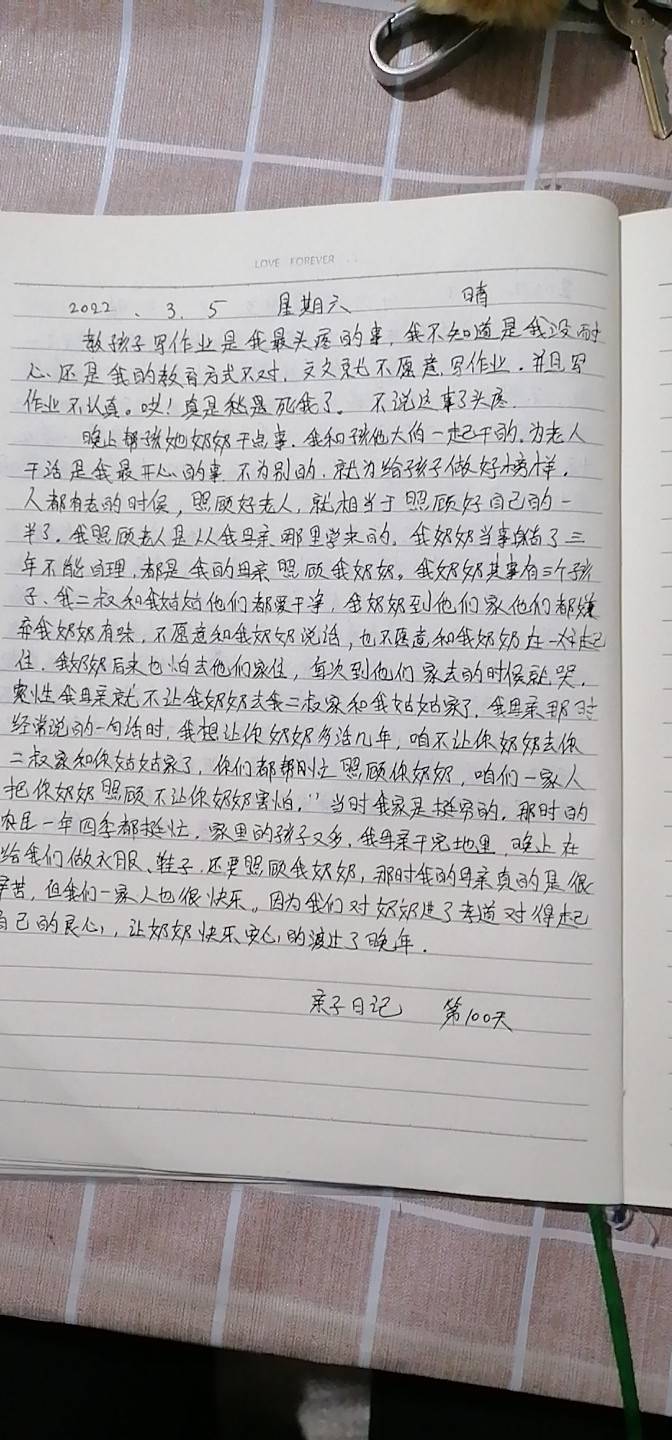 LOVE FOREVER
2022、3.5 星期六 晴
教孩子写作业是我最头疼的事,我不知道是我没耐
心还是我的教育方式不对,文文就不愿意写作业.并且写
作业不认真。哎!真是愁死我了。不说这事了头疼
晚上帮孩她奶奶干点事.我和孩他大伯一起干的.为老人
干活是我最开心的事.不为别的.就为给孩子做好榜样.
人都有老的时候,照顾好老人,就相当于照顾好自己的一
半了.我照顾老人是从我母亲那里学来的.我奶奶当事瘫了三
年不能自理,都是我的母亲照顾我奶奶。我奶奶共事有三个孩
子、我二叔和我姑姑他们都爱干净,我奶奶到他们家他们都嫌
弃我奶奶有味,不愿意和我奶奶说话,也不愿意和我奶奶在一起
住.我奶奶后来也怕去他们家住,每次到他们家去的时候就哭.
索性我母亲就不让我奶奶去我二叔家和我姑姑家了.我母亲那时
经常说的一句话时,我想让你奶奶多活几年,咱不让你奶奶去你
二叔家和你姑姑家了,你们都帮助照顾你奶奶,咱们一家人
把你奶奶照顾不让你奶奶害怕,”当时我家是挺穷的,那时的
农民一年四季都挺忙.家里的孩子又多,我母亲干完地里,晚上在
给我们做衣服、鞋子,还要照顾我奶奶,那时我的母亲真的是很
辛苦,但我们一家人也很快乐。因为我们对奶奶进了孝道对得起
自己的良心,让奶奶快乐安心的渡过了晚年.
亲子日记 第100天